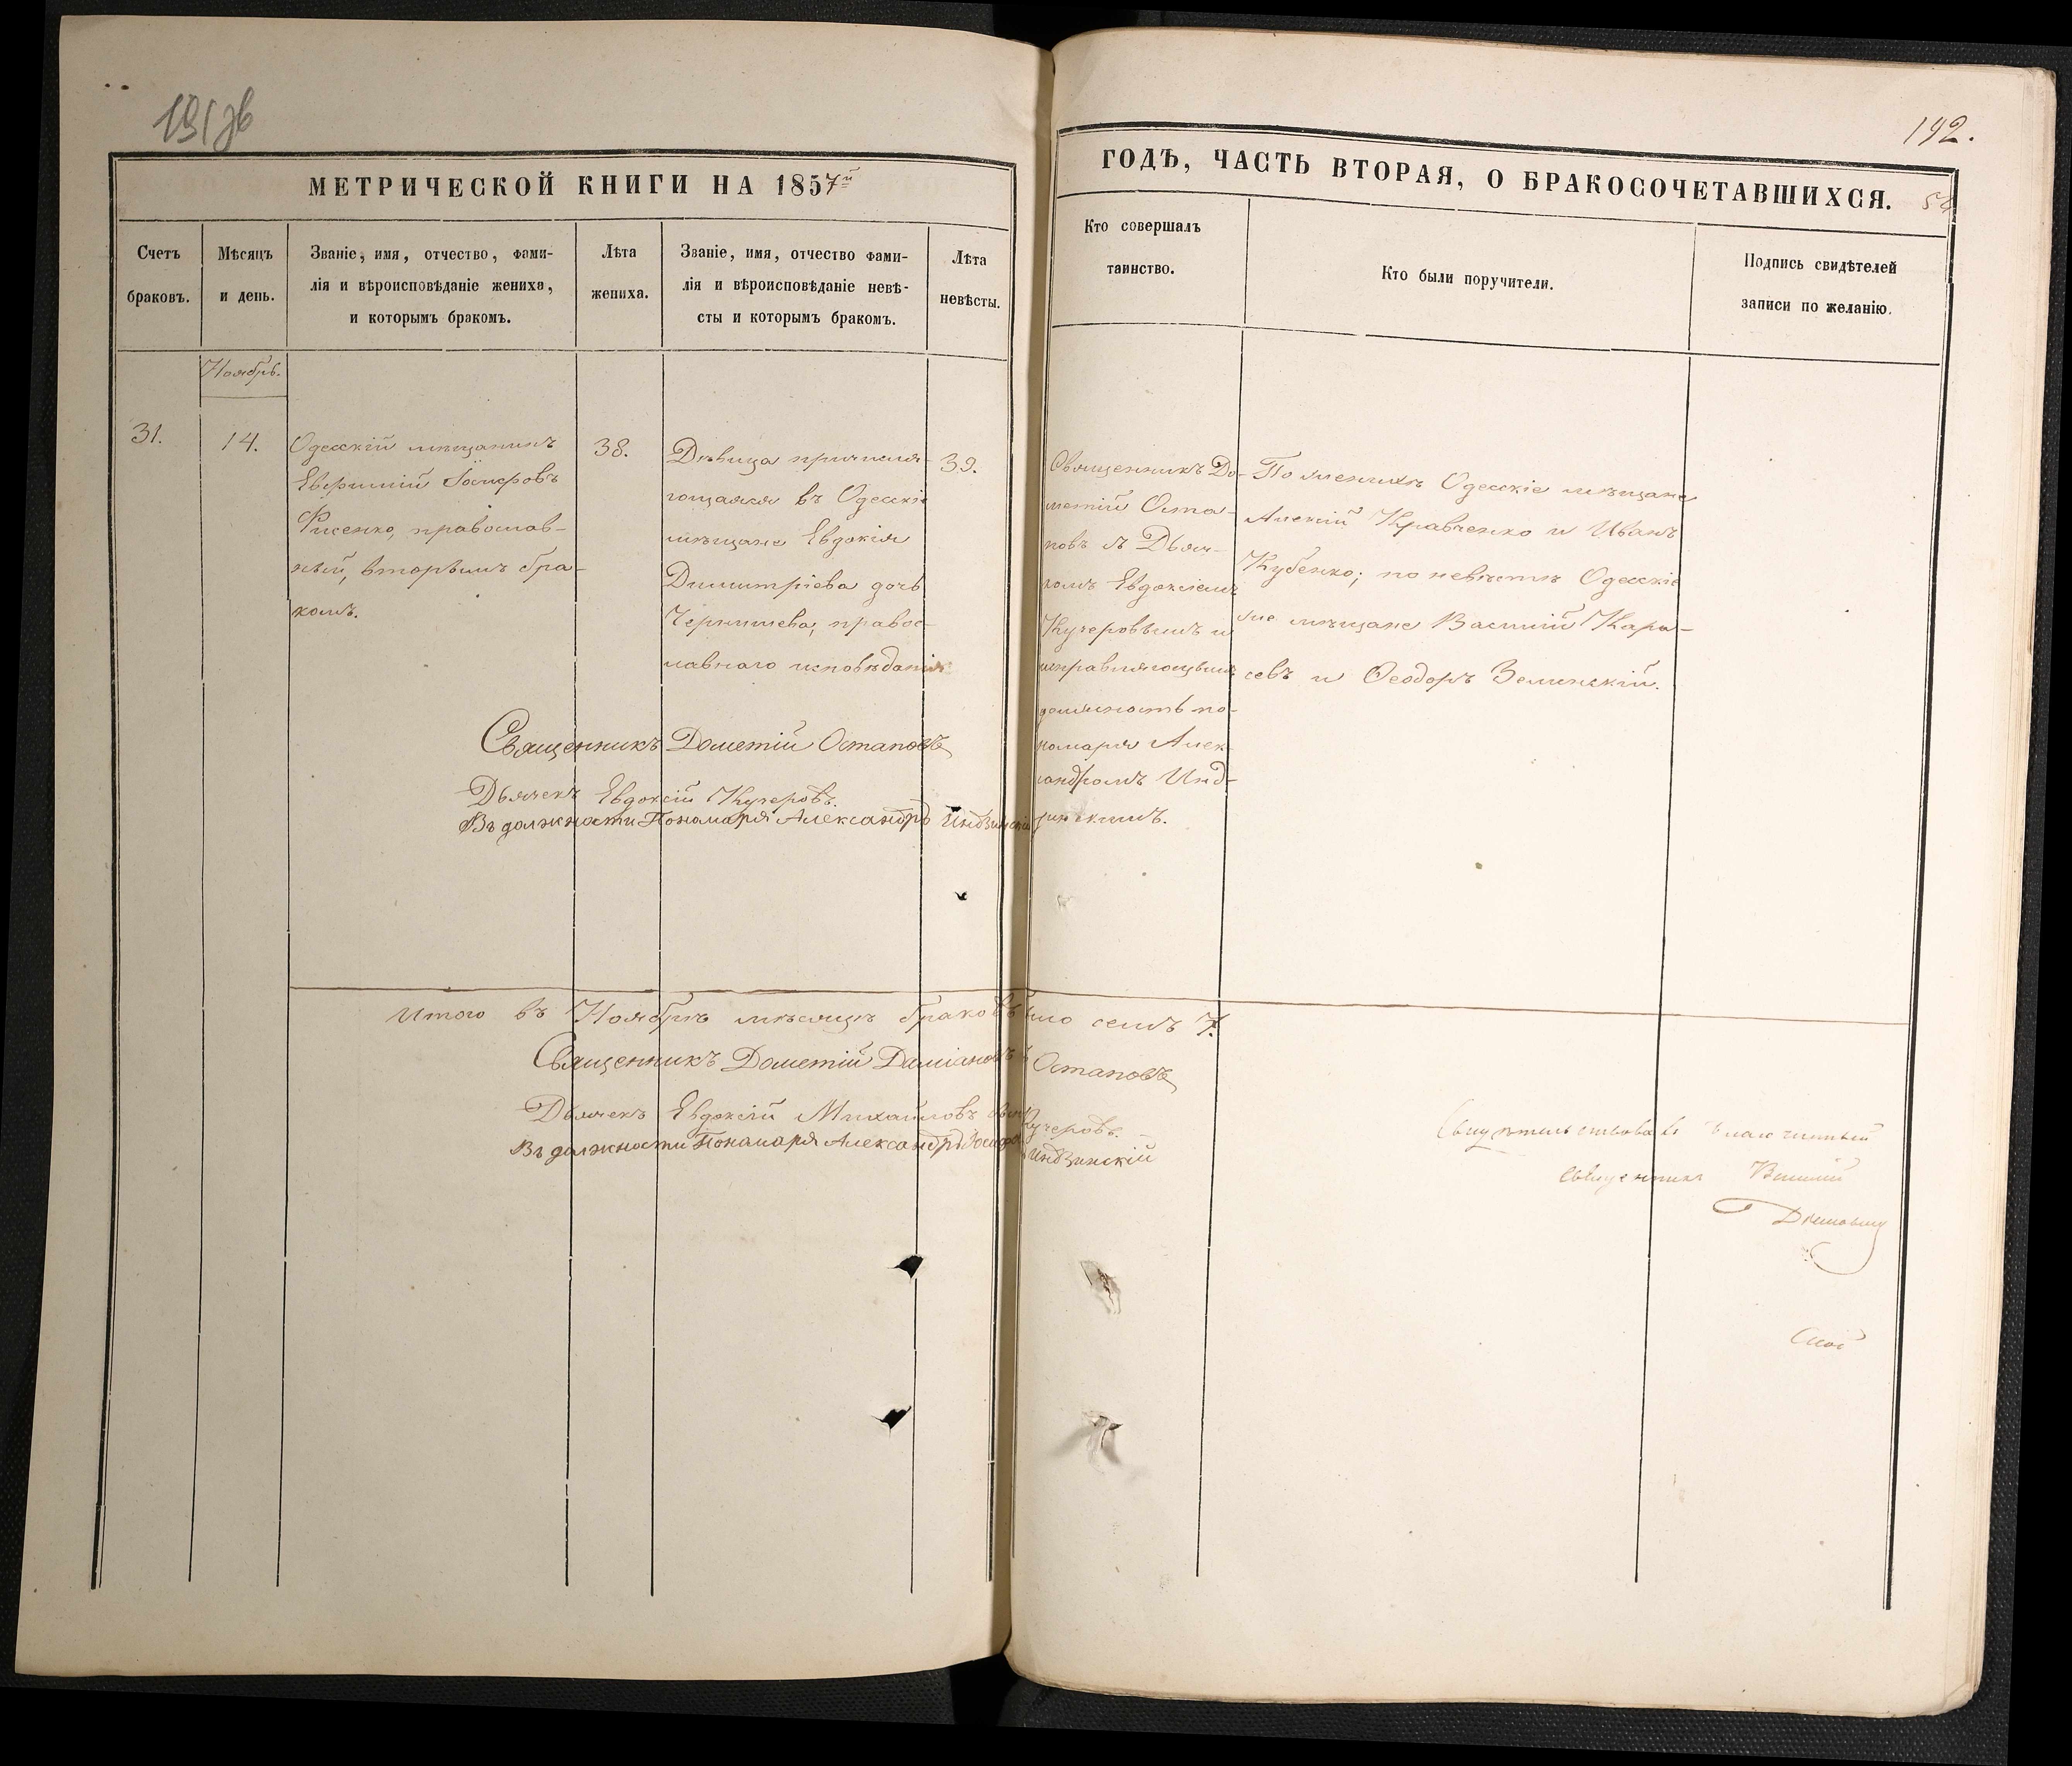 192.
МЕТРИЧЕСКОЙ КНИГИ НА 1857й
ГОДѢ, ЧАСТЬ ВТОРАЯ, О БРАКОСОЧЕТАВШИХСЯ.
Счетъ
браковъ.
Мѣсяцъ
и день.
Званіе, имя, отчество, фами-
лія и вѣроисповѣданіе жениха,
и которымъ бракомъ.
Лѣта
жениха.
Званіе, имя, отчество фами-
лія и вѣроисповѣданіе невѣ-
сты и которымъ бракомъ.
Лѣта
невѣсты.
Кто совершалъ
таинство.
Кто были поручители.
Подпись свидѣтелей
записи по желанію.
Ноябрь.
31.
14.
Одесскій мѣщанинъ
Евфимій
Фисенко, православ-
ный, вторымъ бра-
комъ.
38.
Дѣвица причисля-
ющаяся въ Одесскіе
мѣщане Евдокія
Димитріева дочь
Чернишева, правос-
лавнаго исповѣданія
39.
Священникъ До-
метій Оста-
повъ съ Дьяч-
комъ Евдокіемъ
Кучеровымъ и
исправляющимъ
должность по-
номаря Алек-
сандромъ Инд-
зинскимъ.
По женихѣ Одесскіе мѣщане
Алексій Кравченко и Иванъ
Кубенко; по невѣстѣ Одесскіе
же мѣщане Василій Кара-
севъ и Ѳеодоръ Зелинскій.
Священникъ Дометій Остаповъ
Дьячекъ Евдокій Кучеровъ.
Въ должности Пономаря Александръ Индзинскій
Итого въ Ноябрѣ мѣсяцѣ браковъ было семь 7.
Священникъ Дометій Даміановъ Остаповъ
Дьячекъ Евдокій Михайловъ Кучеровъ.
Въ должности Понамаря Александръ Индзинскій
Свидѣтельствовалъ Благочинный
священникъ Василій